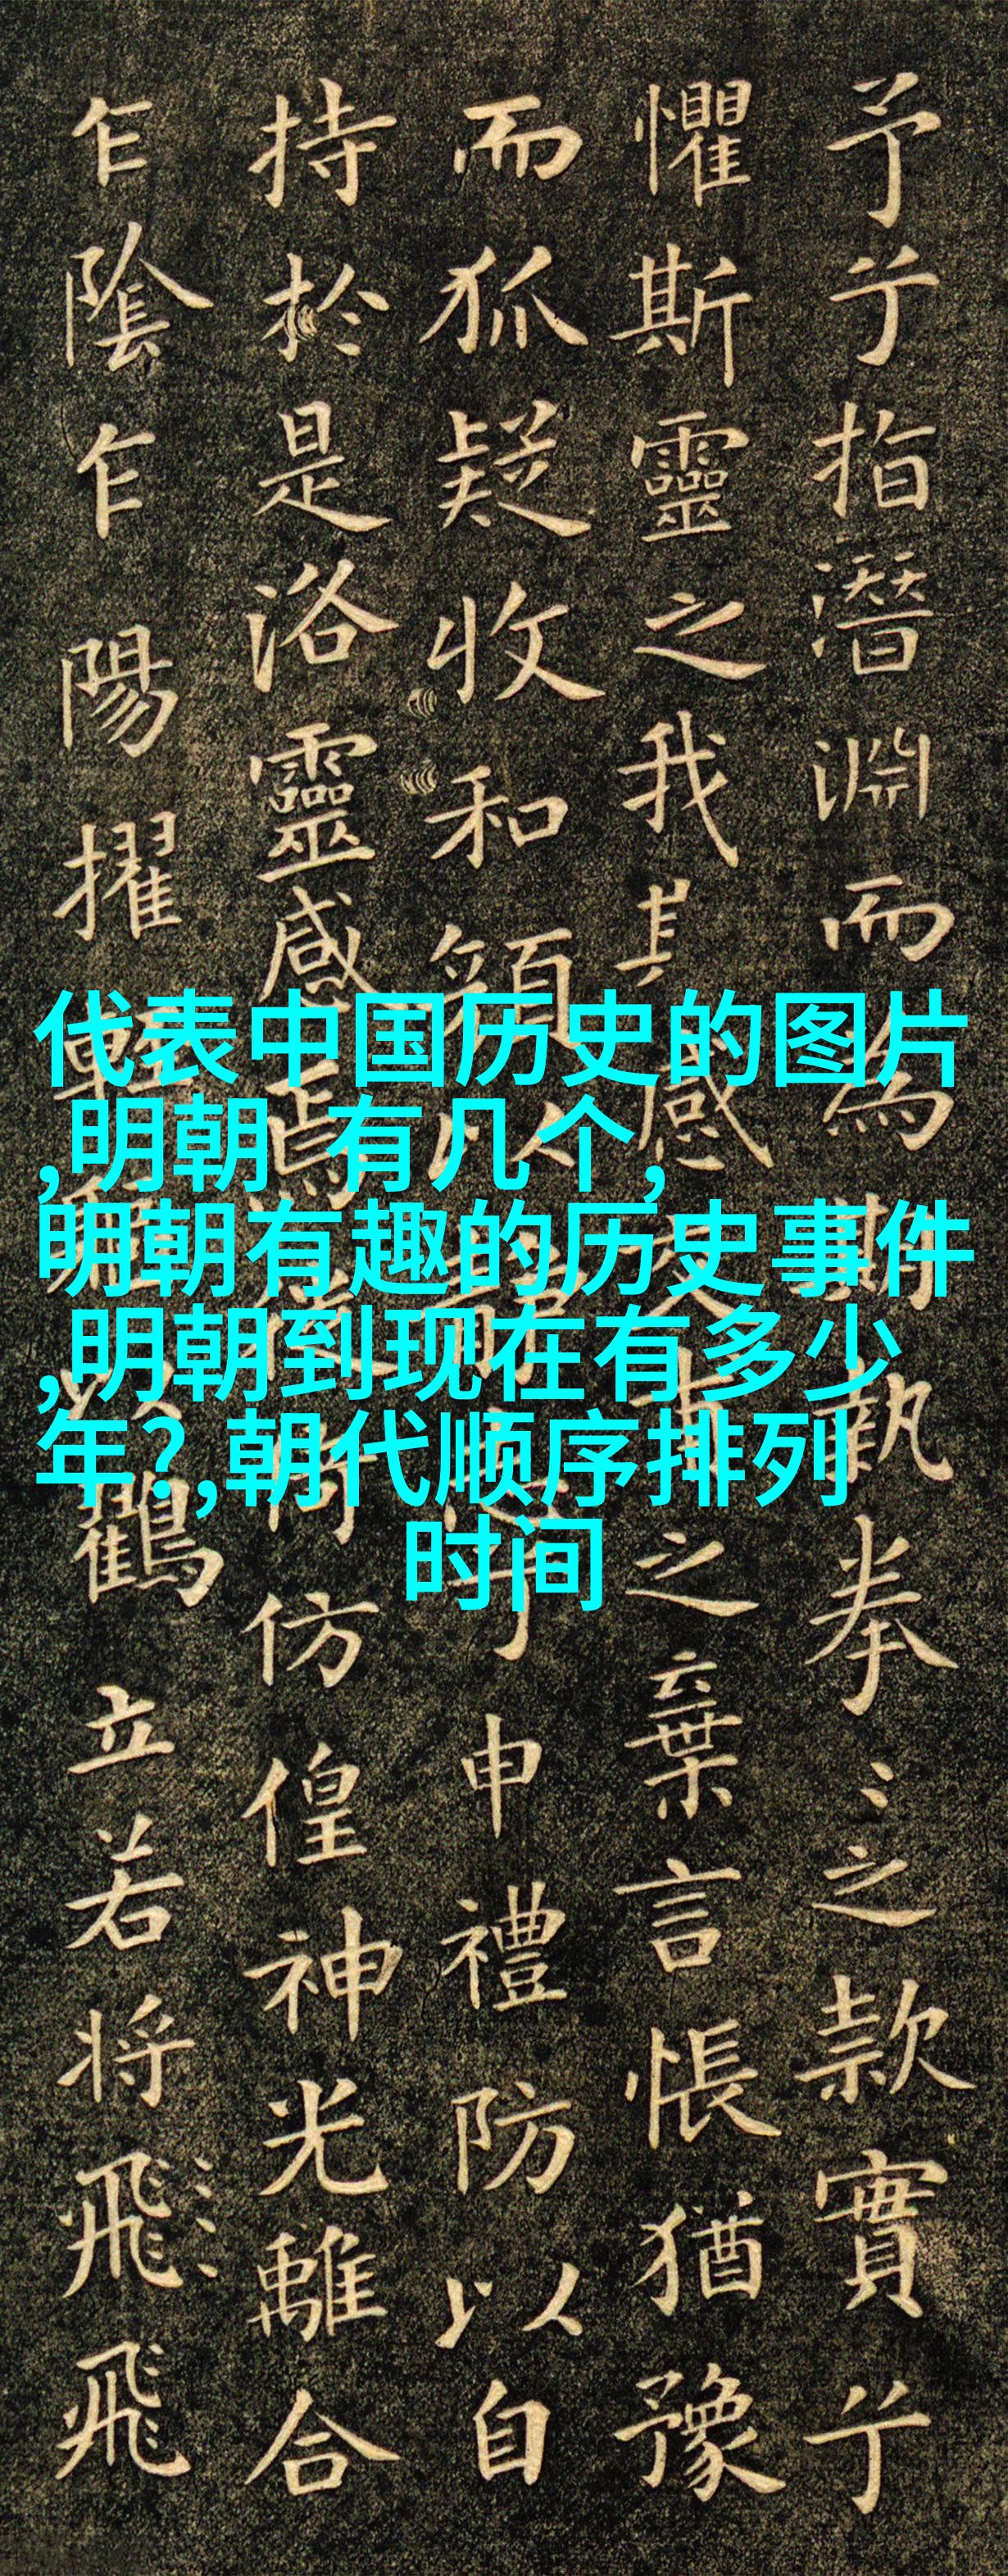 予兮指潛淵而為期執拳〻之款實兮
懼斯靈之我感交甫之棄言悵猶豫
而狐疑收和顏以兮申禮防以自
持於是洛靈感焉倚仿偟神光離合
乍陰乍陽擢輕以鶴立若將飛飛
代表中国历史的图片
,明朝 有几个,
明朝有趣的历史事件
,明朝到现在有多少
年?,朝代顺序排列
时间